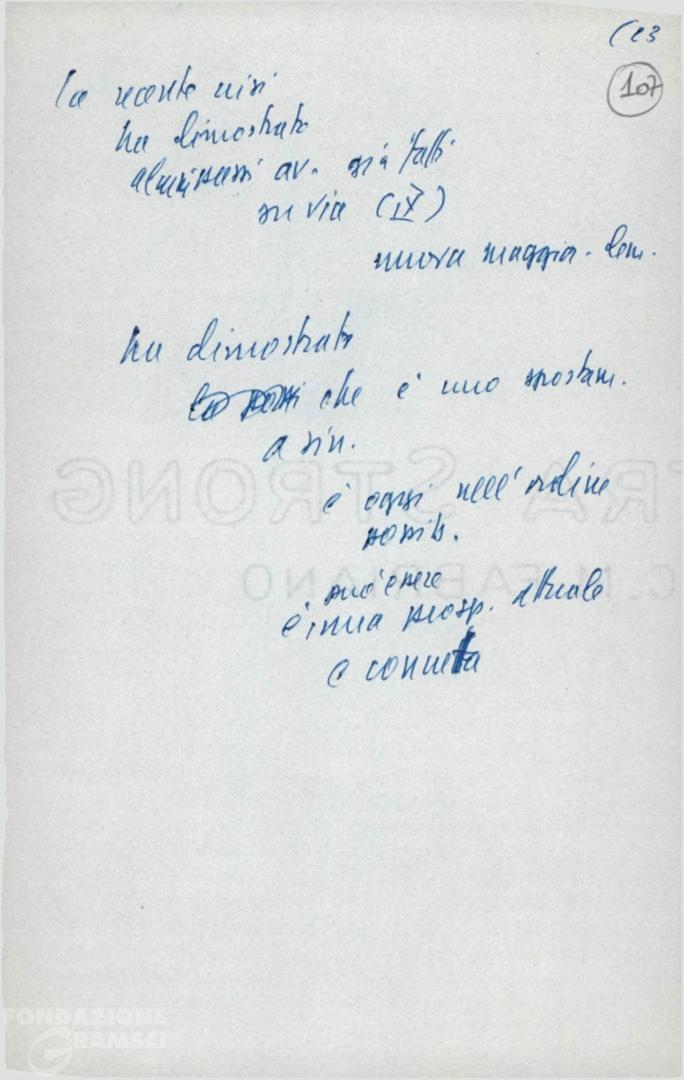 (23
107
la recente crisi
ha dimostrato
alcuni passi av. già fatti
su via (IX)
nuova maggior. dem.
ha dimostrato
che è uno spostam.
a sin.
è oggi nell'ordine
possib.
può essere
è una prosp. attuale
e concreta
TRA STRONG
C.M. FABRIANO
FONDAZIONE
GRAMSCI